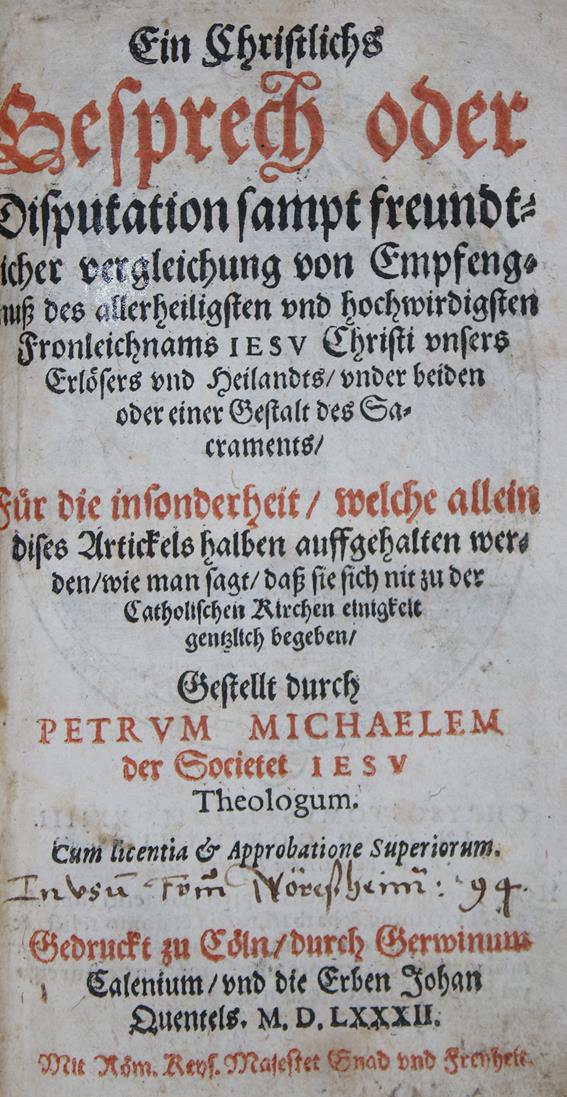 Ein Christlichs
Gesprech oder
Disputation sampt freundt-
licher vergleichung von Empfeng-
nuß des allerheiligsten vnd hochwirdigsten
Fronleichnams IESV Christi vnsers
Erlösers vnd Heilandts/ vnder beiden
oder einer Gestalt des Sa-
craments/
Für die insonderheit/ welche allein
dises Artickels halben auffgehalten wer-
den/wie man sagt/ daß sie sich nit zu der
Catholischen Kirchen einigkeit
gentzlich begeben/
Gestellt durch
PETRVM MICHAELEM
der Societet IESV
Theologum.
Cum licentia & Approbatione Superiorum.
In vsū 94.
Gedruckt zu Cöln/durch Gerwinum
Calenium/vnd die Erben Johan
Quentels. M. D. LXXXII.
Mit Röm. Keys. Maiestet Gnad vnd Freyheit.